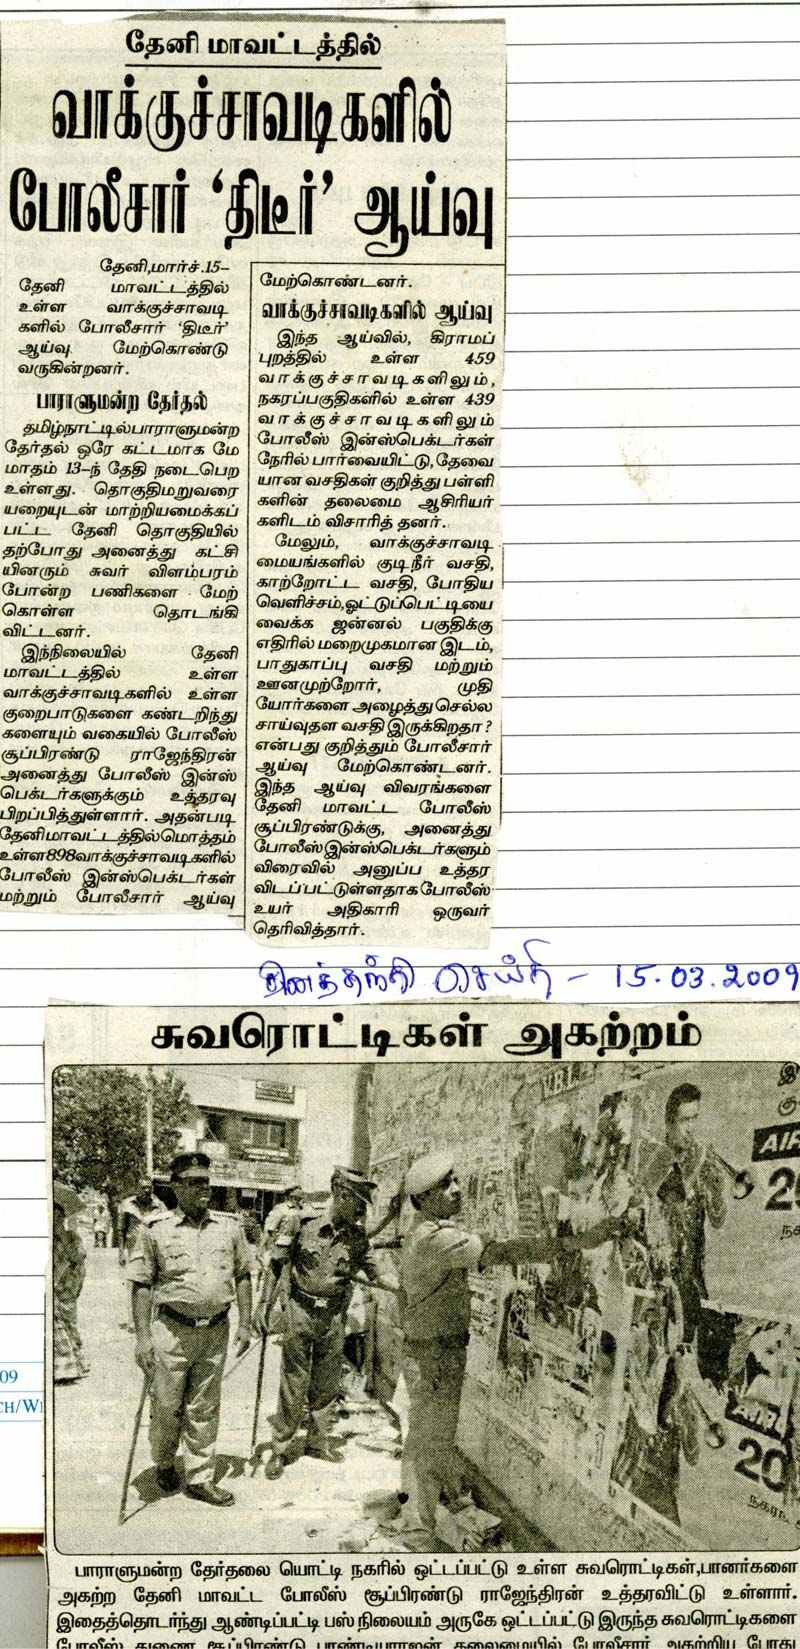 தேனி மாவட்டத்தில்
வாக்குச்சாவடிகளில்
போலீசார் ‘திடீர்’ ஆய்வு
தேனி,மார்ச்.15–
தேனி மாவட்டத்தில்
உள்ள வாக்குச்சாவடி
களில் போலீசார் ‘திடீர்’
ஆய்வு மேற்கொண்டு
வருகின்றனர்.
பாராளுமன்ற தேர்தல்
தமிழ்நாட்டில்பாராளுமன்ற
தேர்தல் ஒரே கட்டமாக மே
மாதம் 13–ந் தேதி நடைபெற
உள்ளது. தொகுதிமறுவரை
யறையுடன் மாற்றியமைக்கப்
பட்ட தேனி தொகுதியில்
தற்போது அனைத்து கட்சி
யினரும் சுவர் விளம்பரம்
போன்ற பணிகளை மேற்
கொள்ள தொடங்கி
விட்டனர்.
இந்நிலையில் தேனி
மாவட்டத்தில் உள்ள
வாக்குச்சாவடிகளில் உள்ள
குறைபாடுகளை கண்டறிந்து
களையும் வகையில் போலீஸ்
சூப்பிரண்டு ராஜேந்திரன்
அனைத்து போலீஸ் இன்ஸ்
பெக்டர்களுக்கும் உத்தரவு
பிறப்பித்துள்ளார். அதன்படி
தேனிமாவட்டத்தில்மொத்தம்
உள்ள898வாக்குச்சாவடிகளில்
போலீஸ் இன்ஸ்பெக்டர்கள்
மற்றும் போலீசார் ஆய்வு
மேற்கொண்டனர்.
வாக்குச்சாவடிகளில் ஆய்வு
இந்த ஆய்வில், கிராமப்
புறத்தில் உள்ள 459
வாக்குச்சாவடிகளிலும்,
நகரப்பகுதிகளில் உள்ள 439
வாக்குச்சாவடிகளிலும்
போலீஸ் இன்ஸ்பெக்டர்கள்
நேரில் பார்வையிட்டு,தேவை
யான வசதிகள் குறித்து பள்ளி
களின் தலைமை ஆசிரியர்
களிடம் விசாரித் தனர்.
மேலும், வாக்குச்சாவடி
மையங்களில் குடிநீர் வசதி,
காற்றோட்ட வசதி, போதிய
வெளிச்சம்,ஓட்டுப்பெட்டியை
வைக்க ஜன்னல் பகுதிக்கு
எதிரில் மறைமுகமான இடம்,
பாதுகாப்பு வசதி மற்றும்
ஊனமுற்றோர், முதி
யோர்களை அழைத்து செல்ல
சாய்வுதள வசதி இருக்கிறதா?
என்பது குறித்தும் போலீசார்
ஆய்வு மேற்கொண்டனர்.
இந்த ஆய்வு விவரங்களை
தேனி மாவட்ட போலீஸ்
சூப்பிரண்டுக்கு, அனைத்து
போலீஸ்இன்ஸ்பெக்டர்களும்
விரைவில் அனுப்ப உத்தர
விடப்பட்டுள்ளதாக போலீஸ்
உயர் அதிகாரி ஒருவர்
தெரிவித்தார்.
தினத்தந்தி செய்தி – 15.03.2009
சுவரொட்டிகள் அகற்றம்
AIR
நக
AIR
20
நகரா
09
CH/W
பாராளுமன்ற தேர்தலை யொட்டி நகரில் ஒட்டப்பட்டு உள்ள சுவரொட்டிகள்,பானர்களை
அகற்ற தேனி மாவட்ட போலீஸ் சூப்பிரண்டு ராஜேந்திரன் உத்தரவிட்டு உள்ளார்.
இதைத்தொடர்ந்து ஆண்டிப்பட்டி பஸ் நிலையம் அருகே ஒட்டப்பட்டு இருந்த சுவரொட்டிகளை
போலீஸ் துணை சூப்பிரண்டு பாண்டியராஜன் தலைமையில் போலீசார் அகற்றிய போது